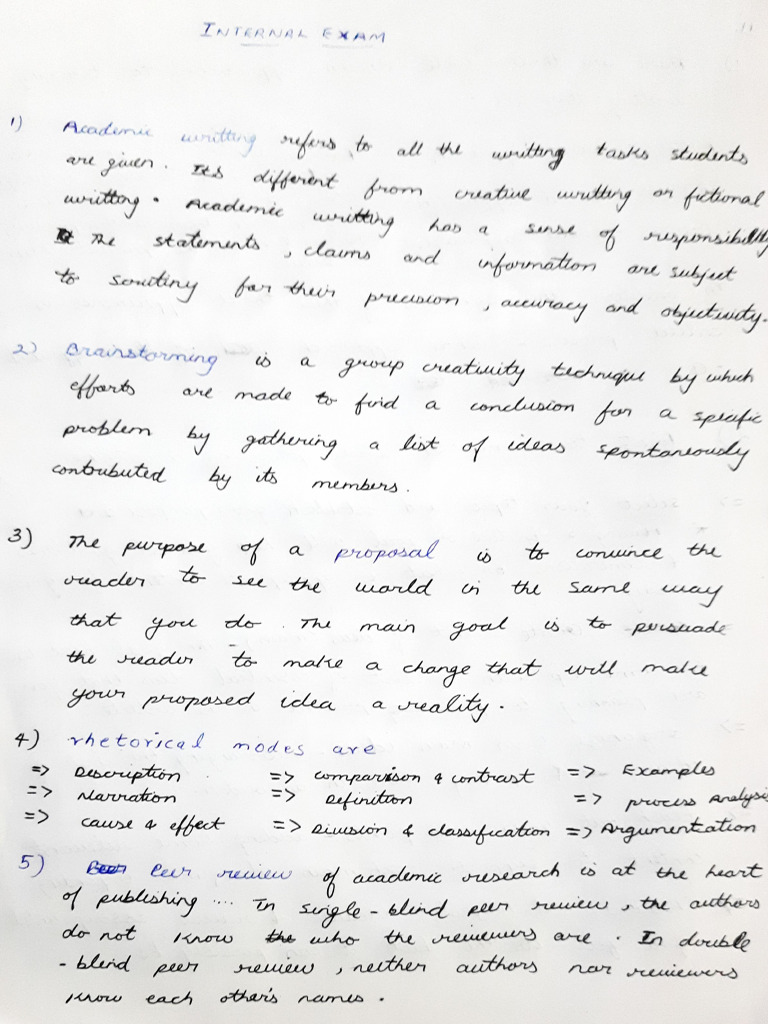 INTERNAL EXAM
1) Academic writting refers to all the writting tasks students
are given. Its different from creative writting or fictional
writting. Academic writting has a sense of responsibility
The statements, claims and information are subject
to scrutiny for their precision, accuracy and objectivity.
2) Brainstorming is a group creativity technique by which
efforts are made to find a conclusion for a specific
problem by gathering a list of ideas spontaneously
contributed by its members.
3) The purpose of a proposal is to convince the
reader to see the world in the same way
that you do. The main goal is to persuade
the reader to make a change that will make
your proposed idea a reality.
4) rhetorical modes are
=> Description => comparison & contrast => Examples
=> Narration => Definition => process Analysis
=> cause & effect => Division & classification => Argumentation
5) Peer review of academic research is at the heart
of publishing .... In single-blind peer review, the authors
do not know who the reviewers are. In double
-blind peer review, neither authors nor reviewers
know each other's names.